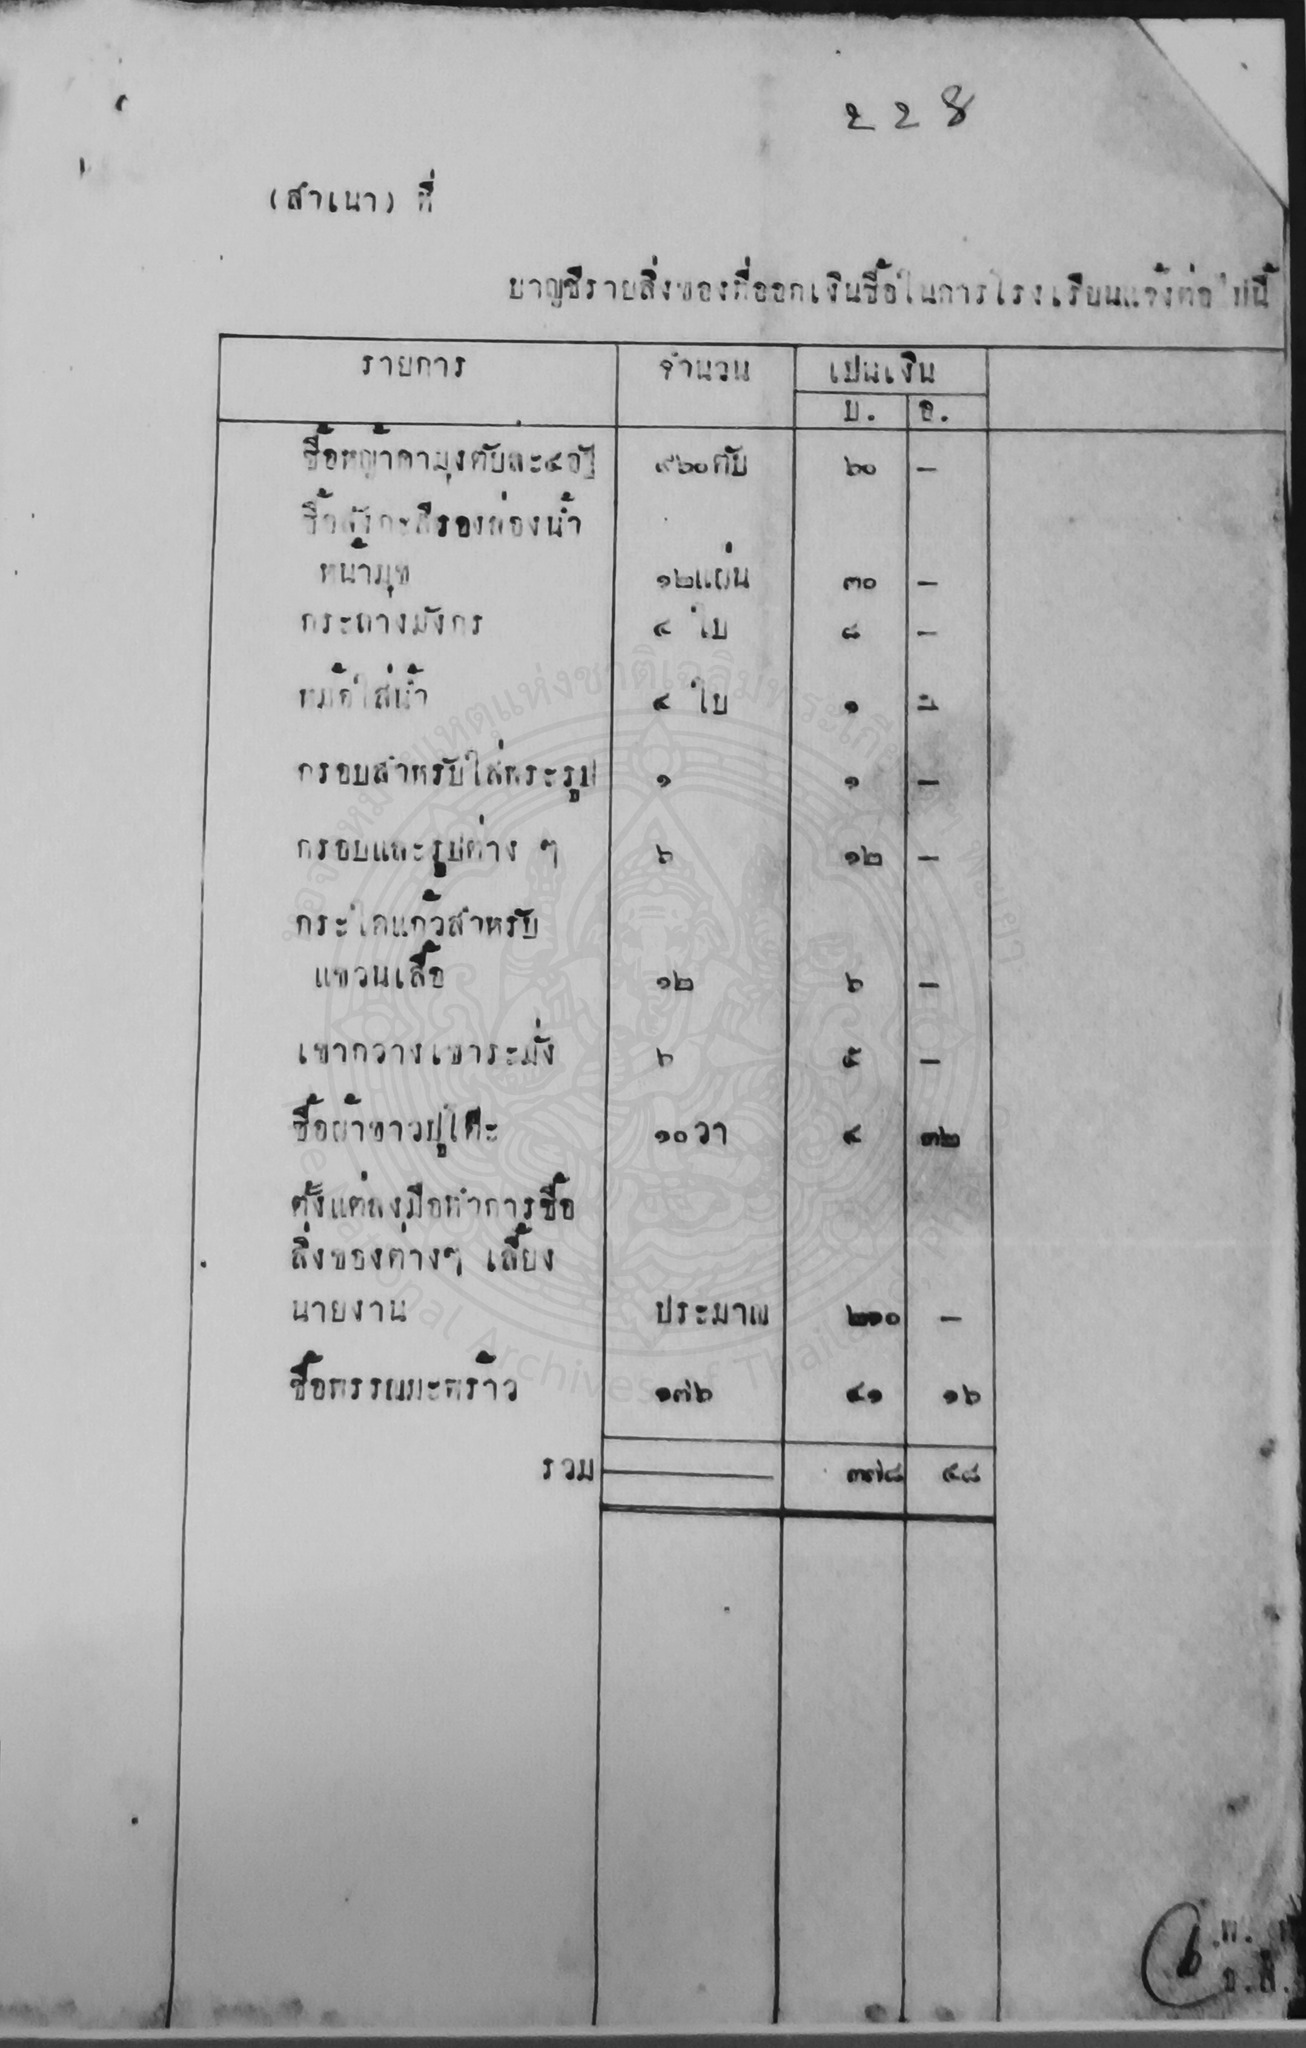 228
(สำเนา) ที่
บาญชีรายสิ่งของที่ออกเงินซื้อในการโรงเรียนแจ้งต่อไปนี้
รายการ จำนวน เปนเงิน
บ. อ.
ซื้อหญ้าคามุงตับละ ๙๖๐ตับ ๖๐ —
ซื้อสังกะสีรองช่องน้ำ
หน้ามุข ๑๒แผ่น ๓๐ —
กระถางมังกร ๔ ใบ ๘ —
หม้อใส่น้ำ ๔ ใบ ๑ —
กรอบสำหรับใส่พระรูป ๑ ๑ —
กรอบและรูปต่าง ๆ ๖ ๑๒ —
กระไดแก้วสำหรับ
แขวนเสื้อ ๑๒ ๖ —
เขากวางเขาระมั่ง ๖ ๕ —
ซื้อผ้าขาวปูโต๊ะ ๑๐วา ๔ ๓๒
ตั้งแต่ลงมือทำการซื้อ
สิ่งของต่างๆ เลี้ยง
นายงาน ประมาณ ๒๑๐ —
ซื้อพรรณมะพร้าว ๑๗๖ ๔๑ ๑๖
รวม ๓๗๘ ๔๘
หอจดหมายเหตุแห่งชาติเฉลิมพระเกียรติฯ พะเยา
National Archives of Thailand
๖